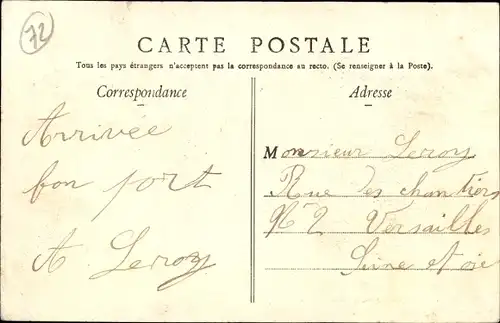 72
CARTE POSTALE
Tous les pays étrangers n'acceptent pas la correspondance au recto. (Se renseigner à la Poste).
Correspondance
Arrivée
bon port
A Leroy
Adresse
Monsieur Leroy
Rue des chantiers
N° 2 Versailles
Seine et oie